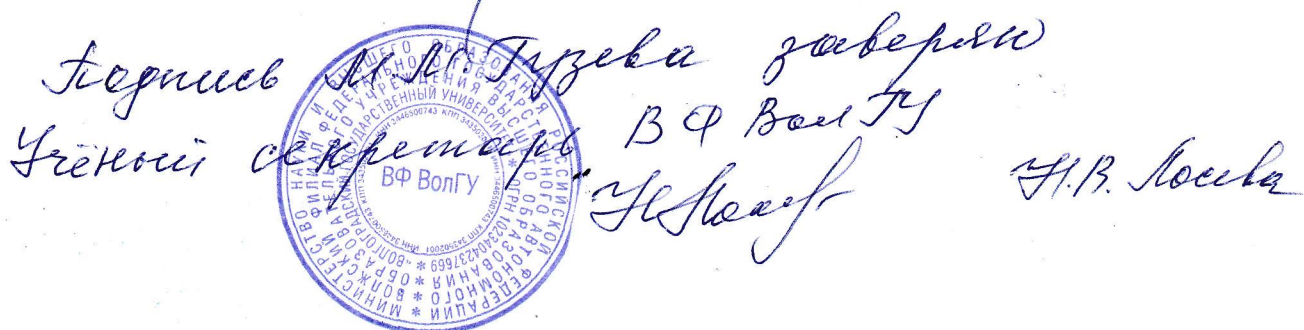 Подпись М.М. Гузева заверяю
Учёный секретарь ВФ ВолГУ
Н.В. Лосева
МИНИСТЕРСТВО НАУКИ И ВЫСШЕГО ОБРАЗОВАНИЯ РОССИЙСКОЙ ФЕДЕРАЦИИ
ВОЛЖСКИЙ ФИЛИАЛ ФЕДЕРАЛЬНОГО ГОСУДАРСТВЕННОГО АВТОНОМНОГО
ОБРАЗОВАТЕЛЬНОГО УЧРЕЖДЕНИЯ ВЫСШЕГО ОБРАЗОВАНИЯ
"ВОЛГОГРАДСКИЙ ГОСУДАРСТВЕННЫЙ УНИВЕРСИТЕТ" * ОГРН 1023404237669 *
ВФ ВолГУ